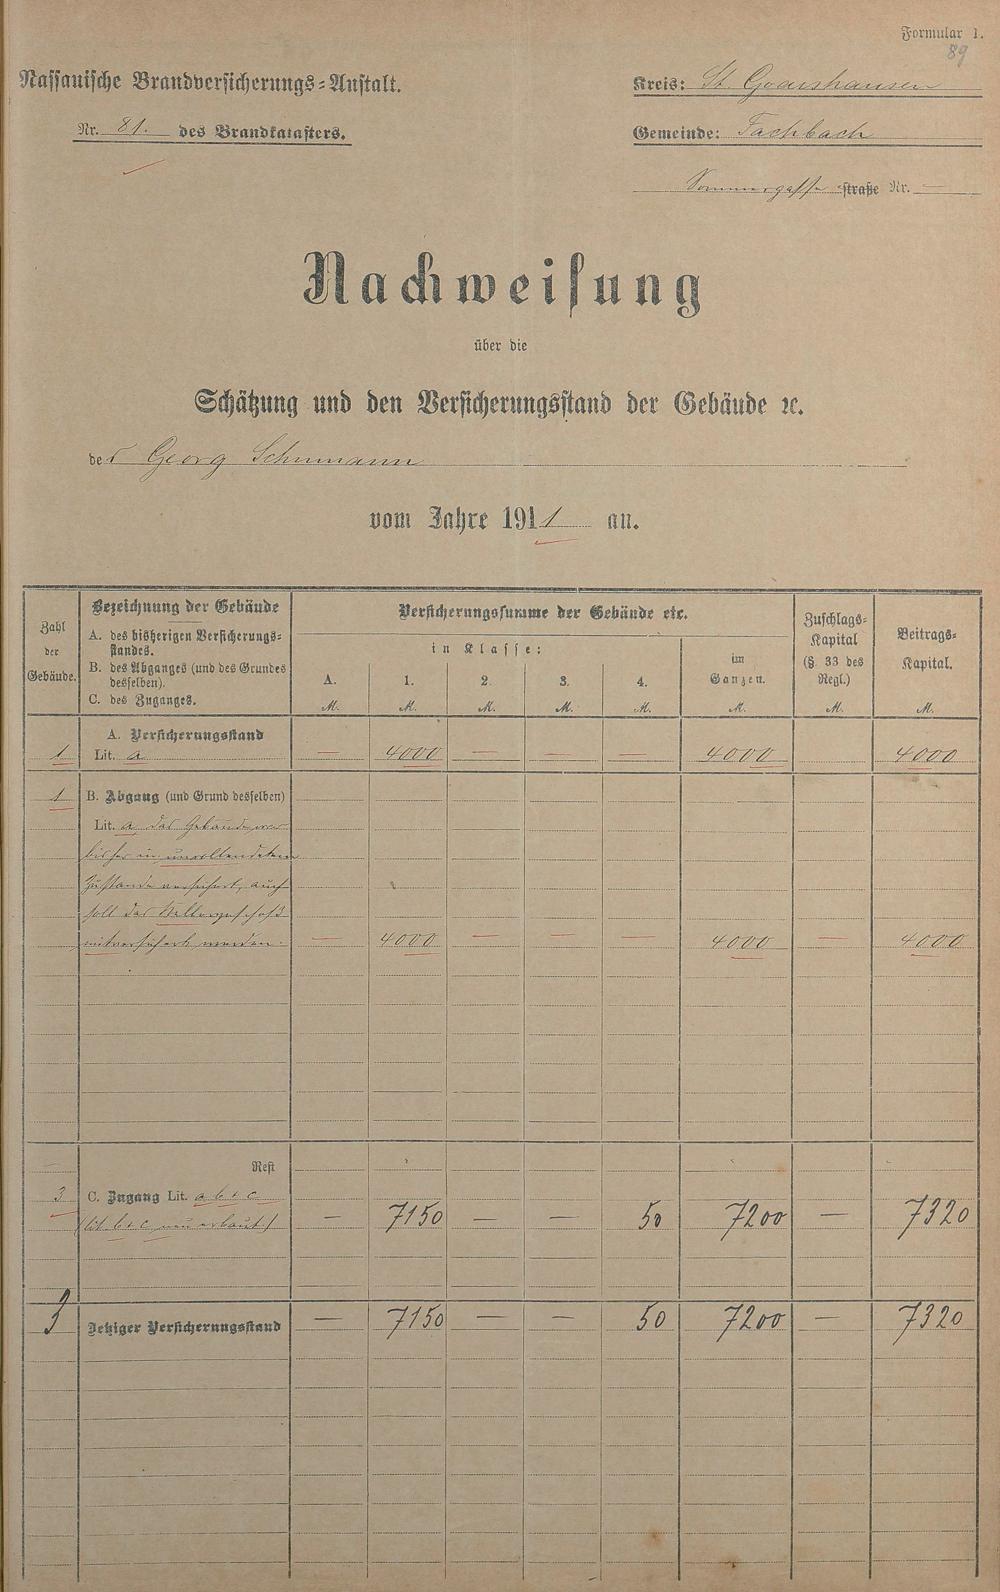 Formular 1.
89
Nassauische Brandversicherungs-Anstalt.
Kreis: St. Goarshausen
Nr. 81. des Brandkatasters.
Gemeinde: Fachbach
Sommergasse straße Nr. —
Nachweisung
über die
Schätzung und den Versicherungsstand der Gebäude ꝛc.
des Georg Schumann
vom Jahre 1911 an.
Zahl der Gebäude.
Bezeichnung der Gebäude
A. des bisherigen Versicherungs-
standes.
B. des Abganges (und des Grundes
desselben).
C. des Zuganges.
Versicherungssumme der Gebäude etc.
in Klasse:
A. 1. 2. 3. 4.
im Ganzen.
Zuschlags-
Kapital
(§. 33 des
Regl.)
Beitrags-
Kapital.
M. M. M. M. M. M. M. M.
A. Versicherungsstand
1 Lit. a — 4000 — — — 4000 4000
1 B. Abgang (und Grund desselben)
Lit. a, das Gebäude war
bisher in unvollendetem
Zustande versichert, auch
soll das Kellergeschoß
mitversichert werden. — 4000 — — — 4000 — 4000
— Rest
3 C. Zugang Lit. a b + c
(lit. b + c neu erbaut) — 7150 — — 50 7200 — 7320
3 Jetziger Versicherungsstand — 7150 — — 50 7200 — 7320